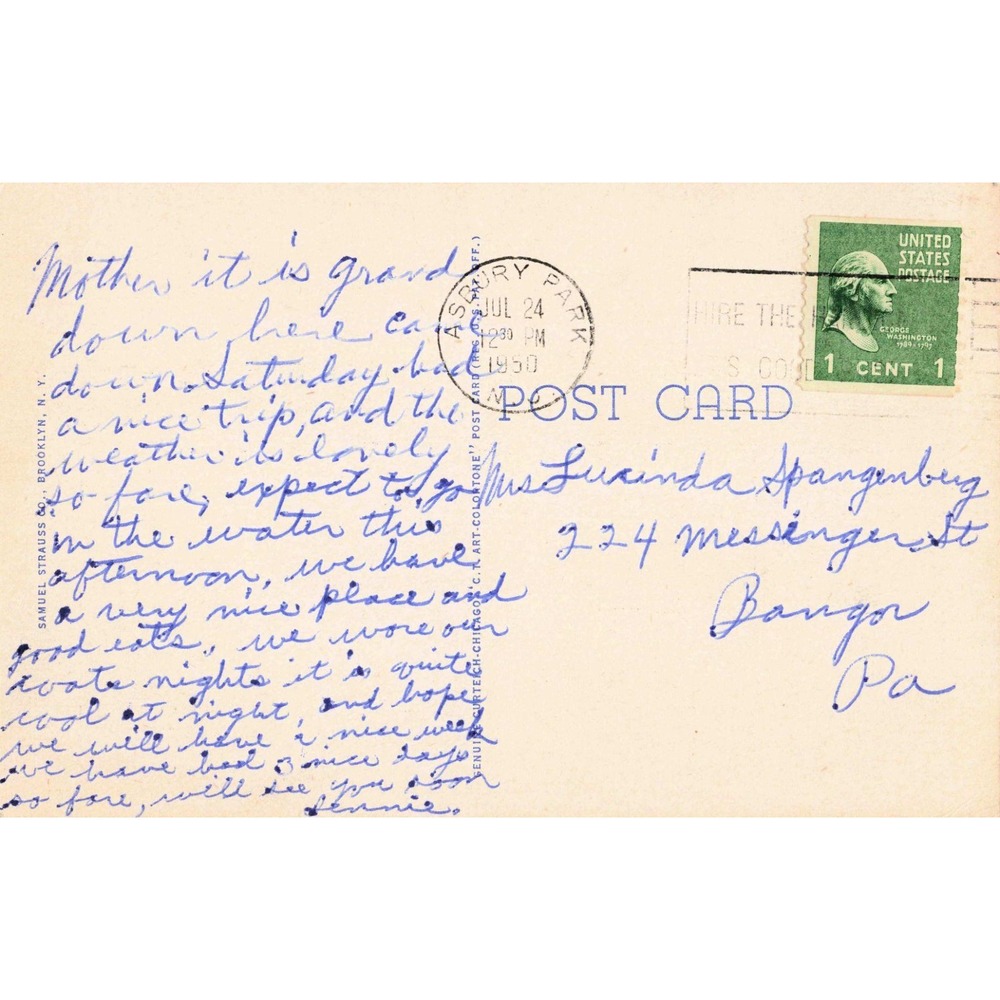 Mother it is grand
down here came
down Saturday had
a nice trip, and the
weather is lovely
so fare, expect to go
in the water this
afternoon, we have
a very nice place and
good eats, we wore our
coats nights it is quite
cool at night, and hope
we will have a nice week
we have had 3 nice days
so fare, will see you soon
Jennie.
SAMUEL STRAUSS CO., BROOKLYN, N. Y.
GENUINE CURTEICH-CHICAGO "C. T. ART-COLORTONE" POST CARD (REG. U.S. PAT. OFF.)
ASBURY PARK
JUL 24
12 30 PM
1950
N.J.
HIRE THE H
'S GOOD
UNITED
STATES
POSTAGE
GEORGE
WASHINGTON
1789-1797
1 CENT 1
POST CARD
Mrs Lucinda Spangenberg
224 Messinger St
Bangor
Pa